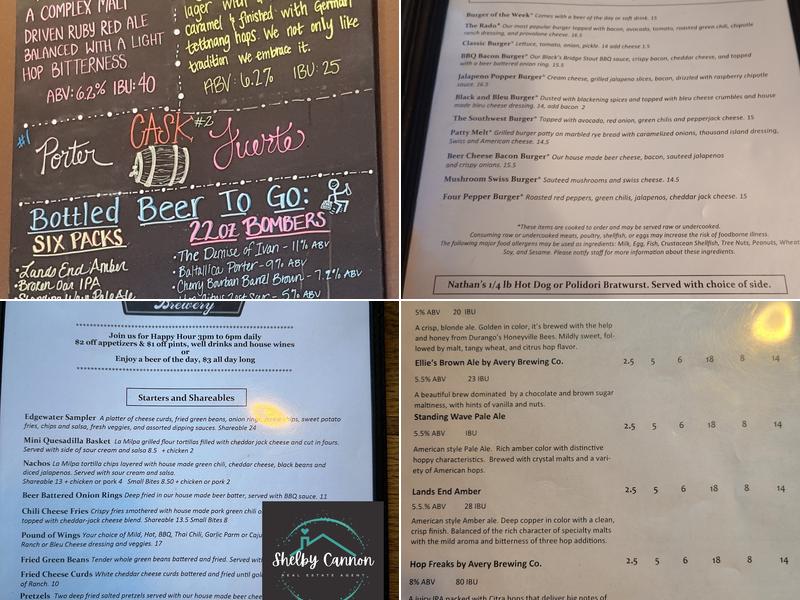 A COMPLEX MALT
DRIVEN RUBY RED ALE
BALANCED WITH A LIGHT
HOP BITTERNESS
ABV: 6.2% IBU: 40
lager with a
caramel & finished with German
tettnang hops. We not only like
tradition we embrace it.
ABV: 6.2% IBU: 25
#1 Porter
CASK
#2 Fuerte
Bottled Beer To Go:
SIX PACKS
• Lands End Amber
• Broken Oar IPA
• Standing Wave Pale Ale
22oz BOMBERS
• The Demise of Ivan - 11% ABV
• Baltallica Porter - 9% ABV
• Cherry Bourbon Barrel Brown - 7.2% ABV
Burger of the Week* Comes with a beer of the day or soft drink. 15
The Rado* Our most popular burger topped with bacon, avocado, tomato, roasted green chili, chipotle
ranch dressing, and provalone cheese. 16.5
Classic Burger* Lettuce, tomato, onion, pickle. 14 add cheese 1.5
BBQ Bacon Burger* Our Black's Bridge Stout BBQ sauce, crispy bacon, cheddar cheese, and topped
with a beer battered onion ring. 15.5
Jalapeno Popper Burger* Cream cheese, grilled jalapeno slices, bacon, drizzled with raspberry chipotle
sauce. 16.5
Black and Bleu Burger* Dusted with blackening spices and topped with bleu cheese crumbles and house
made bleu cheese dressing. 14, add bacon 2
The Southwest Burger* Topped with avocado, red onion, green chilis and pepperjack cheese. 15
Patty Melt* Grilled burger patty on marbled rye bread with caramelized onions, thousand island dressing,
Swiss and American cheese. 14.5
Beer Cheese Bacon Burger* Our house made beer cheese, bacon, sauteed jalapenos
and crispy onions. 15.5
Mushroom Swiss Burger* Sauteed mushrooms and swiss cheese. 14.5
Four Pepper Burger* Roasted red peppers, green chilis, jalapenos, cheddar jack cheese. 15
*These items are cooked to order and may be served raw or undercooked.
Consuming raw or undercooked meats, poultry, shellfish, or eggs may increase the risk of foodborne illness.
The following major food allergens may be used as ingredients: Milk, Egg, Fish, Crustacean Shellfish, Tree Nuts, Peanuts, Wheat
Soy, and Sesame. Please notify staff for more information about these ingredients.
Nathan's 1/4 lb Hot Dog or Polidori Bratwurst. Served with choice of side.
Brewery
Join us for Happy Hour 3pm to 6pm daily
$2 off appetizers & $1 off pints, well drinks and house wines
or
Enjoy a beer of the day, $3 all day long
Starters and Shareables
Edgewater Sampler A platter of cheese curds, fried green beans, onion rings, chips, sweet potato
fries, chips and salsa, fresh veggies, and assorted dipping sauces. Shareable 24
Mini Quesadilla Basket La Milpa grilled flour tortillas filled with cheddar jack cheese and cut in fours.
Served with side of sour cream and salsa 8.5 + chicken 2
Nachos La Milpa tortilla chips layered with house made green chili, cheddar cheese, black beans and
diced jalapenos. Served with sour cream and salsa.
Shareable 13 + chicken or pork 4 Small Bites 8.50 + chicken or pork 2
Beer Battered Onion Rings Deep fried in our house made beer batter, served with BBQ sauce. 11
Chili Cheese Fries Crispy fries smothered with house made pork green chili
topped with cheddar-jack cheese blend. Shareable 13.5 Small Bites 8
Pound of Wings Your choice of Mild, Hot, BBQ, Thai Chili, Garlic Parm or
Ranch or Bleu Cheese dressing and veggies. 17
Fried Green Beans Tender whole green beans battered and fried. Served
Fried Cheese Curds White cheddar cheese curds battered and fried until
of Ranch. 10
Pretzels Two deep fried salted pretzels served with our house made beer
Shelby Cannon
REAL ESTATE AGENT
5% ABV 20 IBU
A crisp, blonde ale. Golden in color, it's brewed with the help
and honey from Durango's Honeyville Bees. Mildly sweet, fol-
lowed by malt, tangy wheat, and citrus hop flavor.
Ellie's Brown Ale by Avery Brewing Co. 2.5 5 6 18 8 14
5.5% ABV 23 IBU
A beautiful brew dominated by a chocolate and brown sugar
maltiness, with hints of vanilla and nuts.
Standing Wave Pale Ale 2.5 5 6 18 8 14
5.5% ABV IBU
American style Pale Ale. Rich amber color with distinctive
hoppy characteristics. Brewed with crystal malts and a vari-
ety of American hops.
Lands End Amber 2.5 5 6 18 8 14
5.5.% ABV 28 IBU
American style Amber ale. Deep copper in color with a clean,
crisp finish. Balanced of the rich character of specialty malts
with the mild aroma and bitterness of three hop additions.
Hop Freaks by Avery Brewing Co. 2.5 5 6 18 8 14
8% ABV 80 IBU
A juicy IPA packed with Citra hops that deliver big notes of